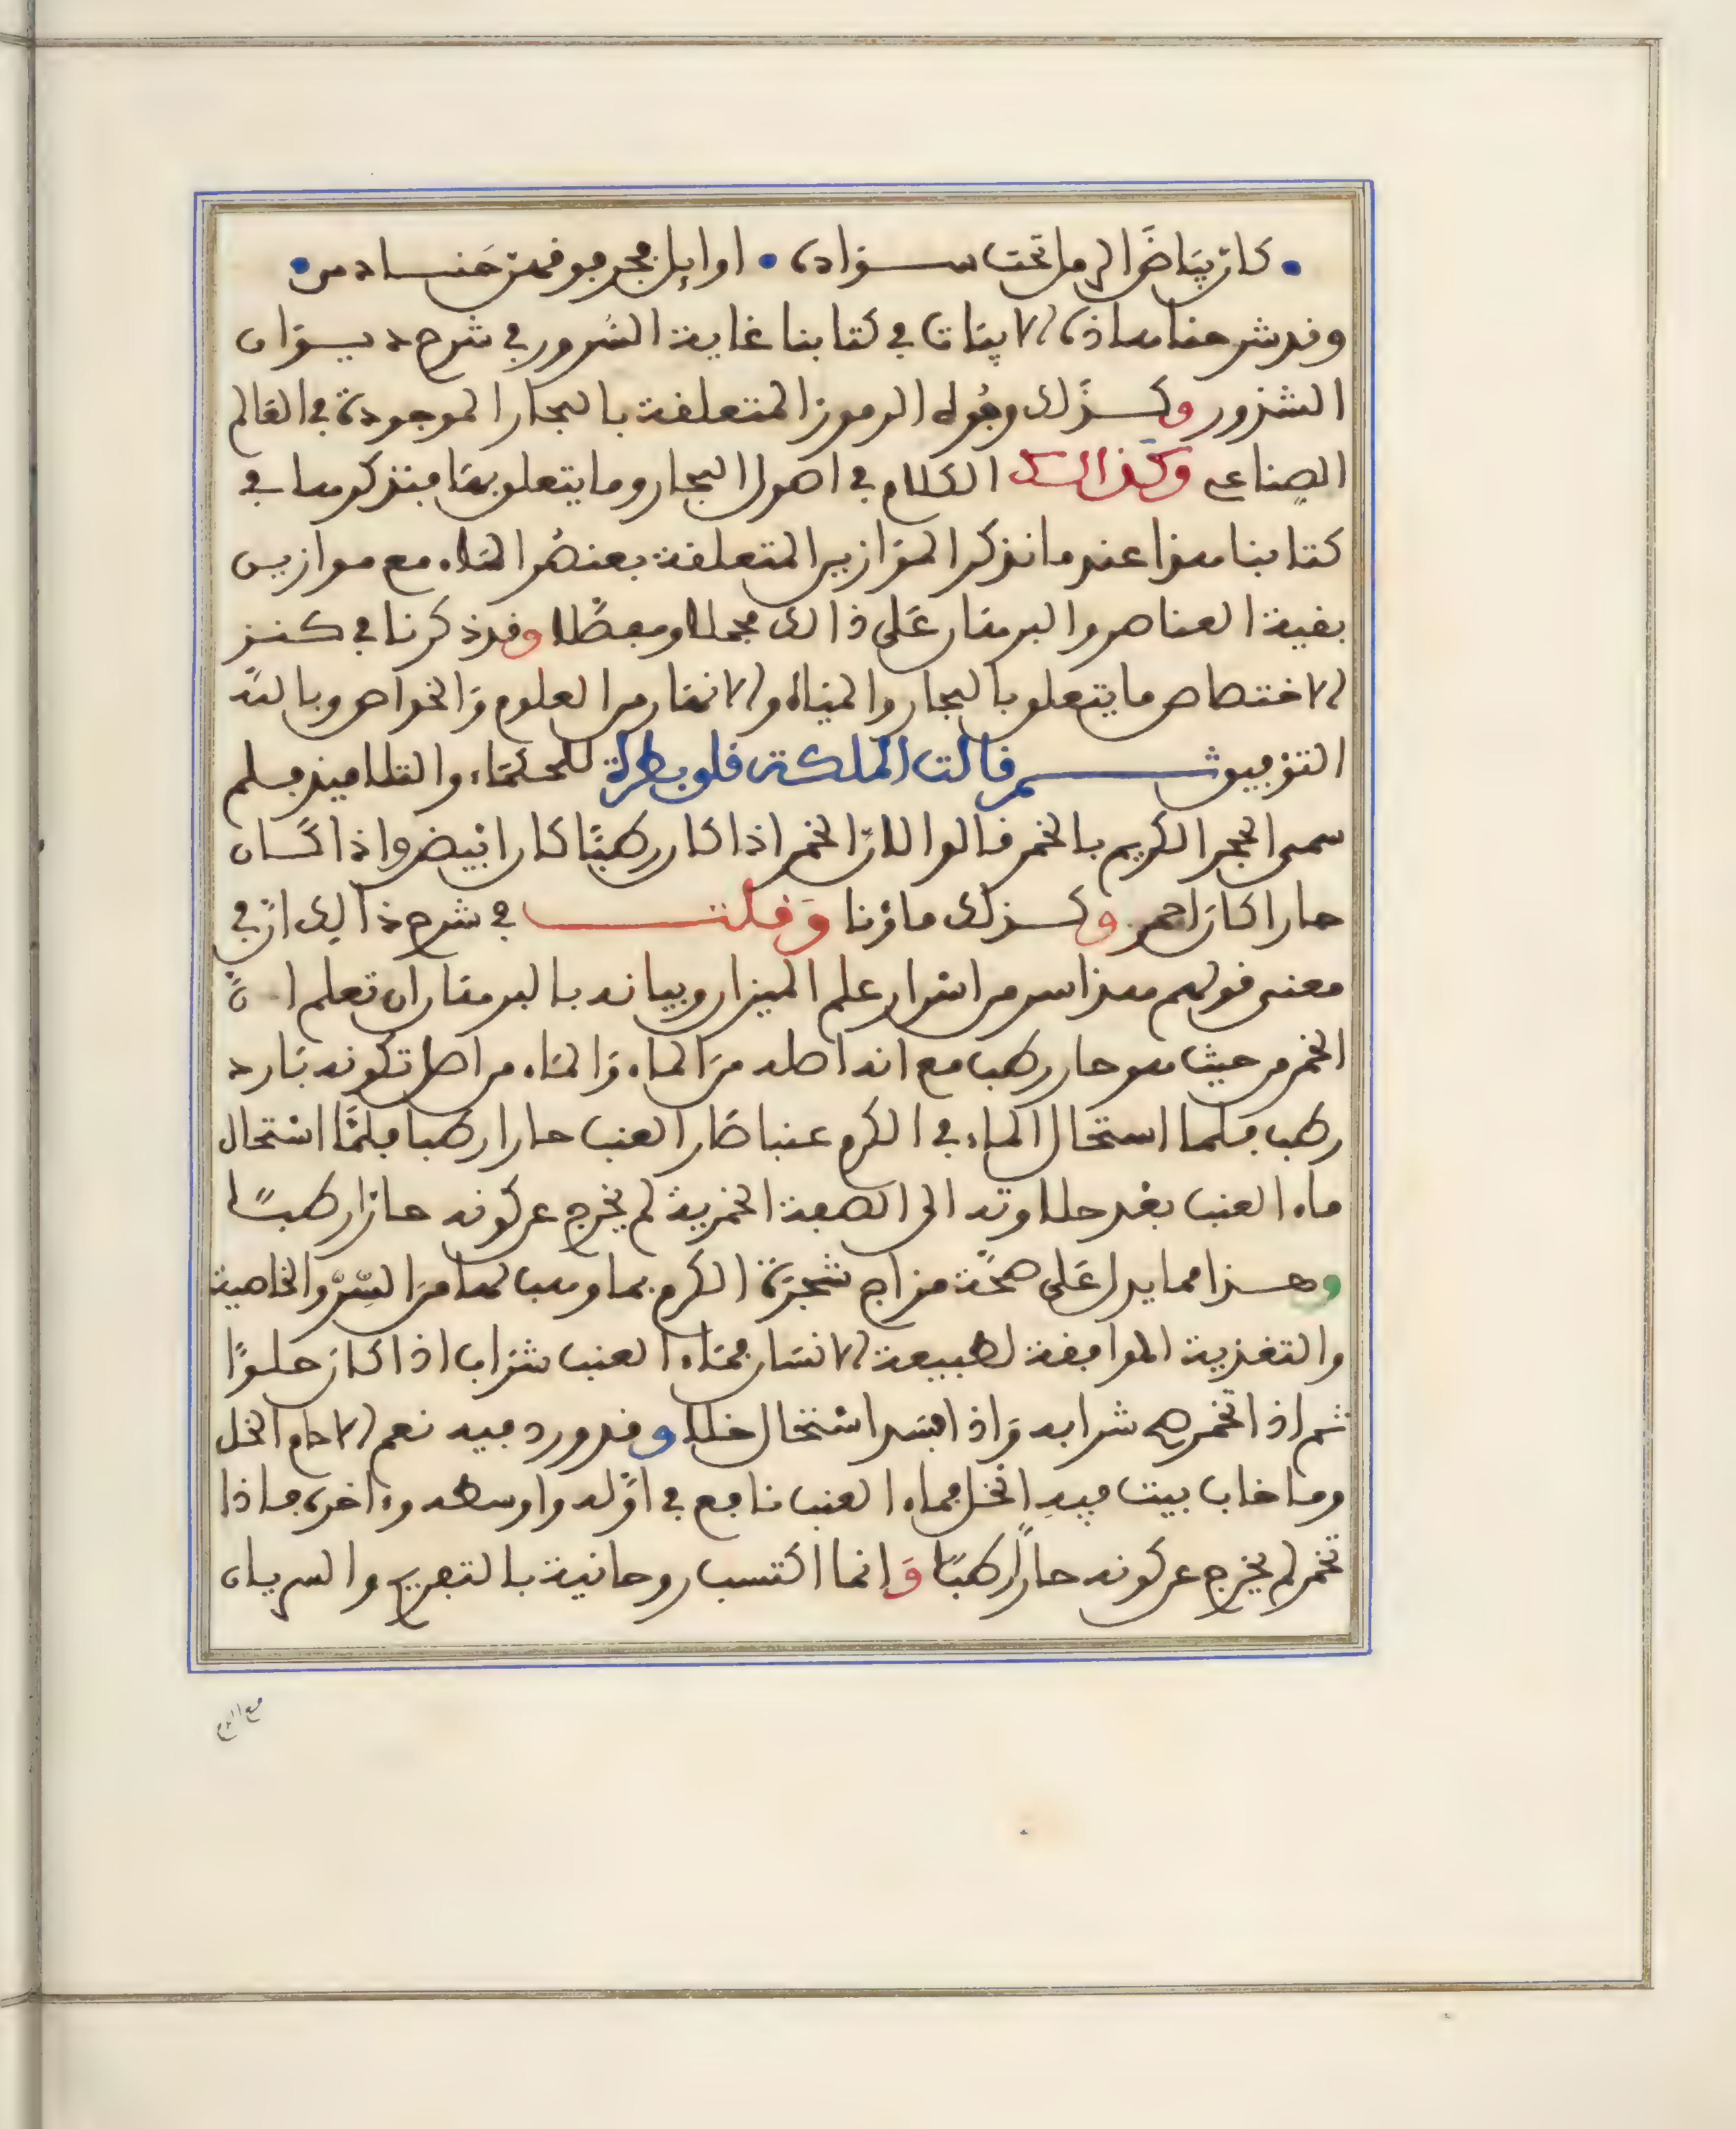 كان بياضا لاح ما تحت سواده اوايل فجر فوقهن حنادس
وقد شرحنا هاذه الابيات في كتابنا غاية السرور في شرح ديوان
الشذور وكذلك وجوه الرموز المتعلقة بالبحار الموجودة في العالم
الصناعي وكذالك الكلام في اصول البحار وما يتعلق بها فنذكرها في
كتابنا هذا عند ما نذكر الموازين المتعلقة بعنصر الماء مع موازين
بقية العناصر والبرهان على ذالك مجملا ومفصلا وقد ذكرنا في كنز
الاختصاص ما يتعلق بالبحار والمياه والانهار من العلوم والخواص وبالله
التوفيق ثم قالت الملكة قلوبطرة للحكماء والتلاميذ فلم
سمى الحجر الكريم بالخمر قالوا لان الخمر اذا كان رطبا كان ابيض واذا كان
حارا كان احمر وكذلك ماؤنا وقلت في شرح ذالك ان في
معنى قولهم هذا سر من اسرار علم الميزان وبيانه بالبرهان ان تعلم ان
الخمر من حيث هو حار رطب مع انه اصله من الماء والماء من اصل تكونه بارد
رطب فلما استحال الماء في الكرم عنبا صار العنب حارا رطبا فلما استحال
ماء العنب بعد حلاوته الى الصبغة الخمرية لم يخرج عن كونه حارا رطبا
وهذا مما يدل على صحة مزاج شجرة الكرم بما وهب لها من السر والخاصية
والتغذية الموافقة لطبيعة الانسان فماء العنب شراب اذا كان حلوا
ثم اذا تخمر هو شرابه واذا فسد استحال خلا وقد ورد فيه نعم الادام الخل
وما خاب بيت فيه الخل فماء العنب نافع في اوله واوسطه وءاخره فاذا
تخمر لم يخرج عن كونه حارا رطبا وانما اكتسب روحانية بالتفريح والسريان